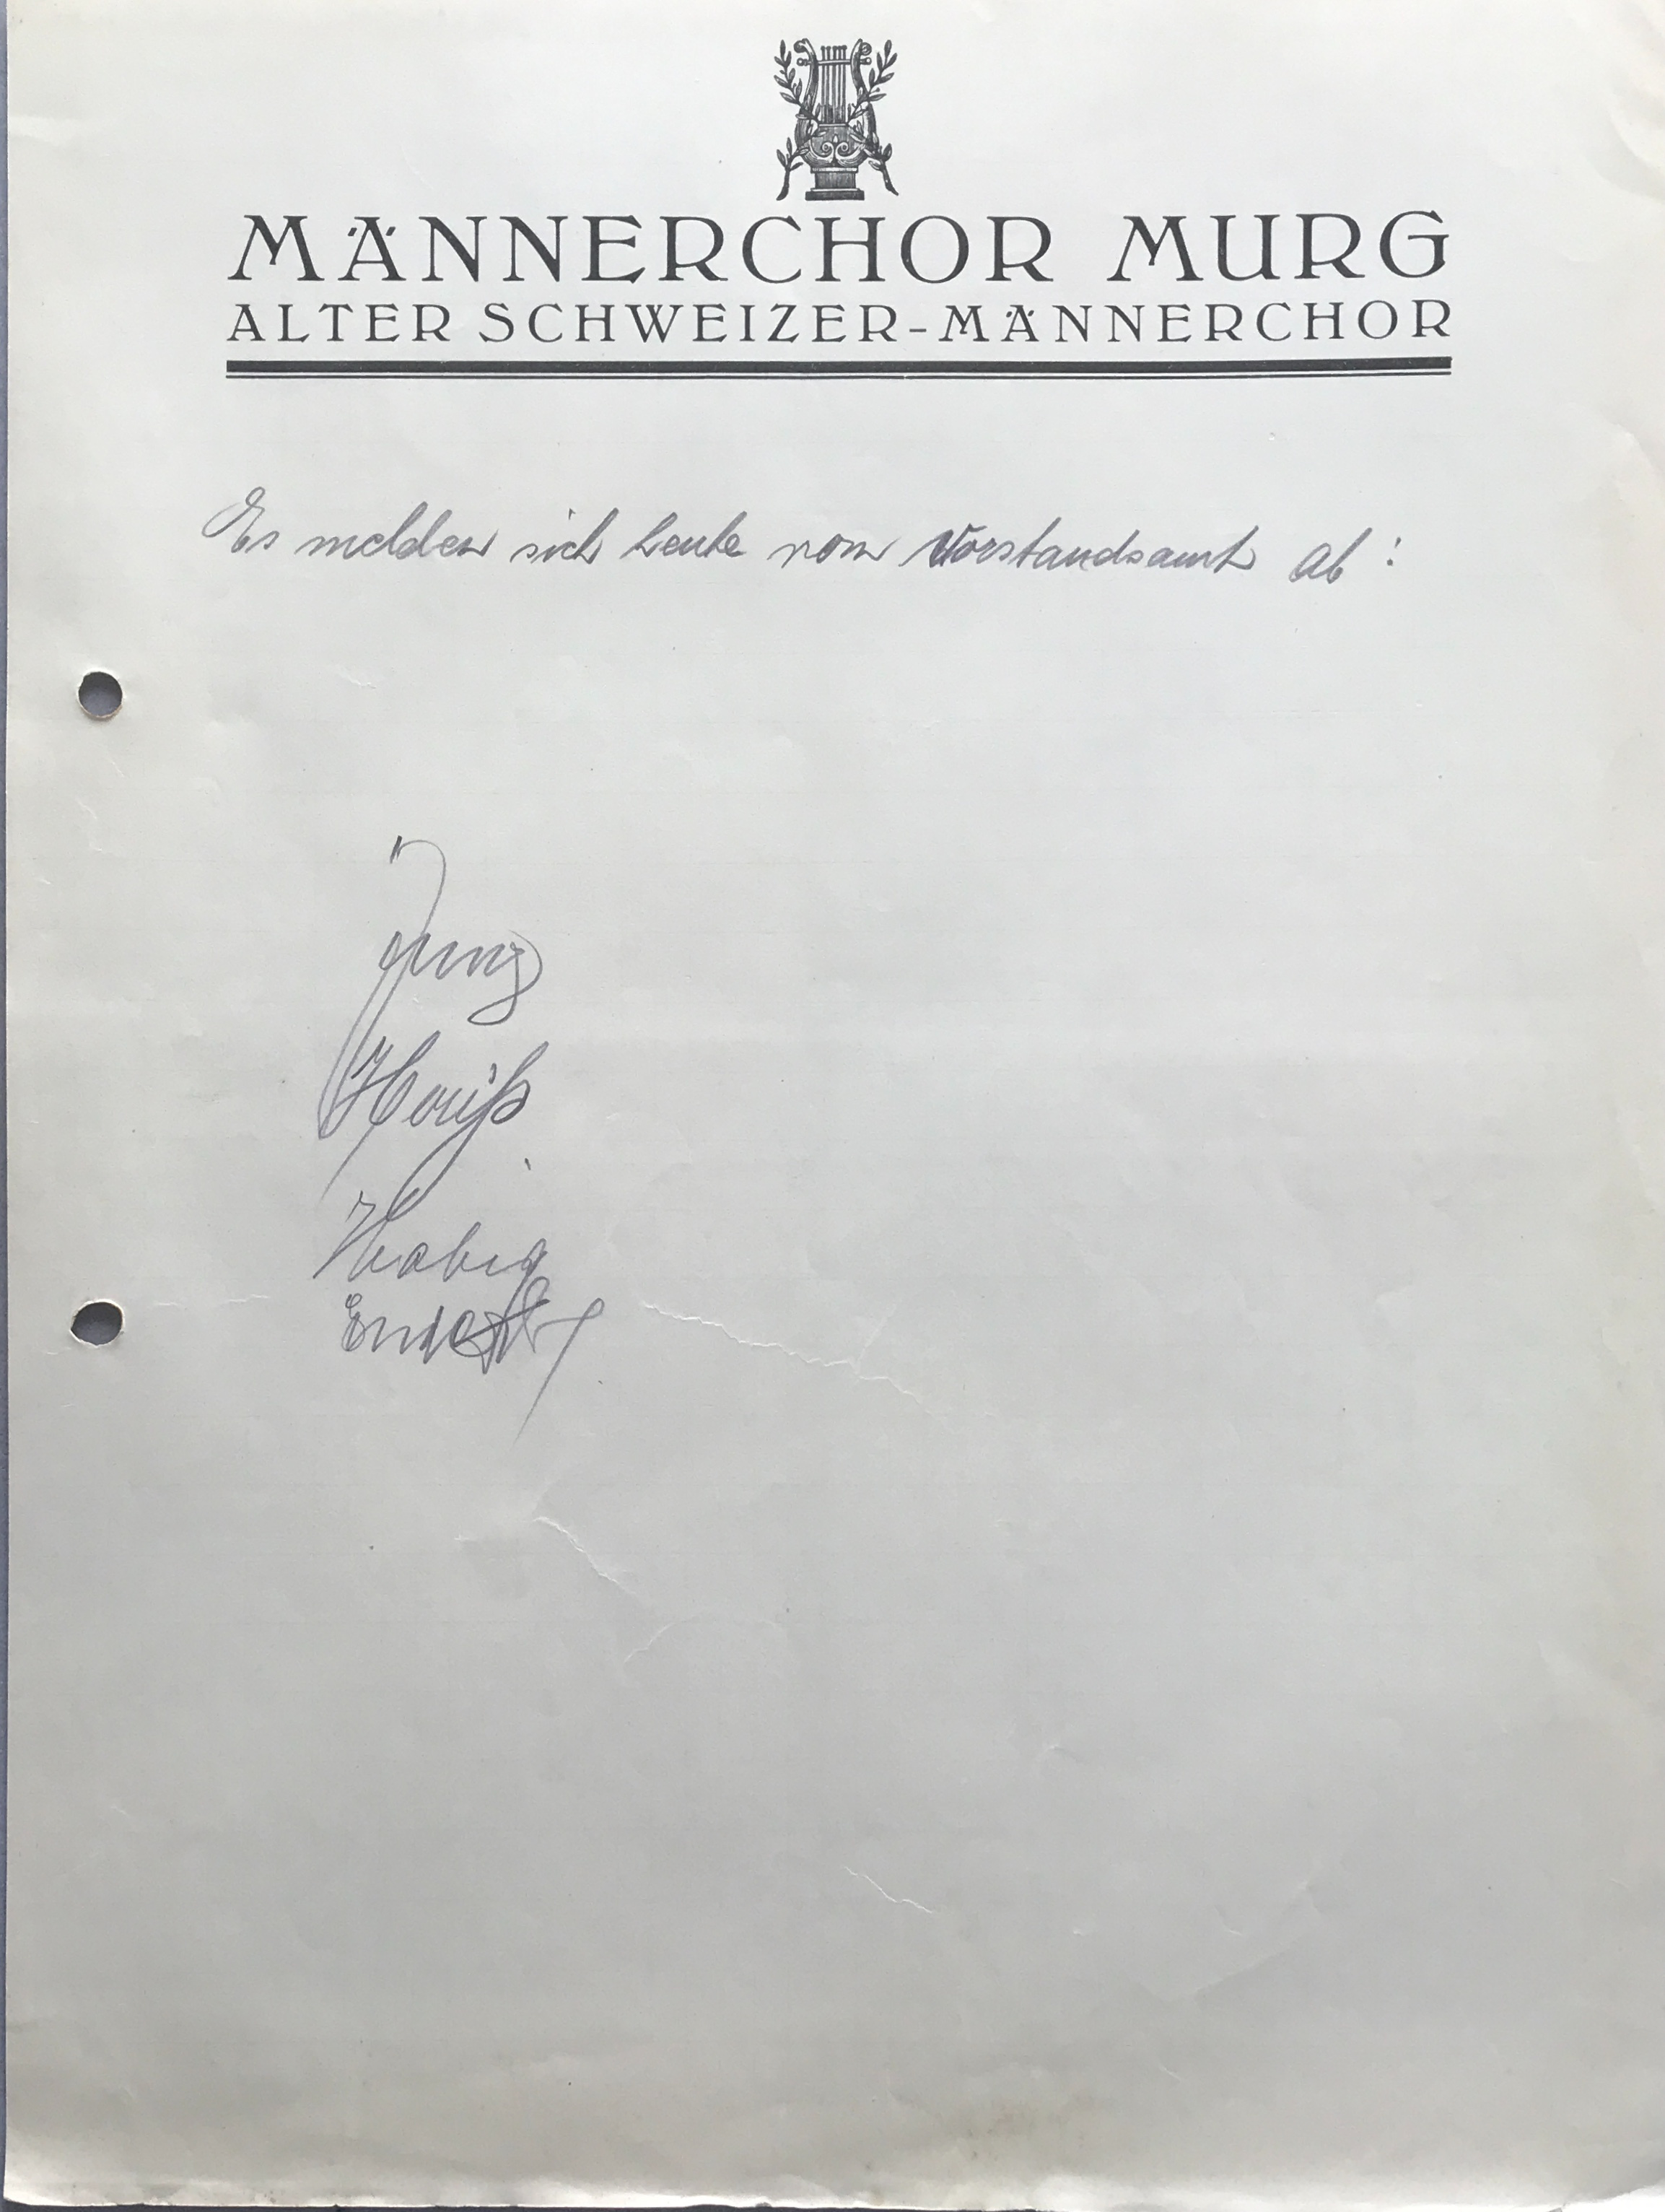 MÄNNERCHOR MURG
ALTER SCHWEIZER-MÄNNERCHOR
Es melden sich heute vom Vorstandsamt ab:
Jung